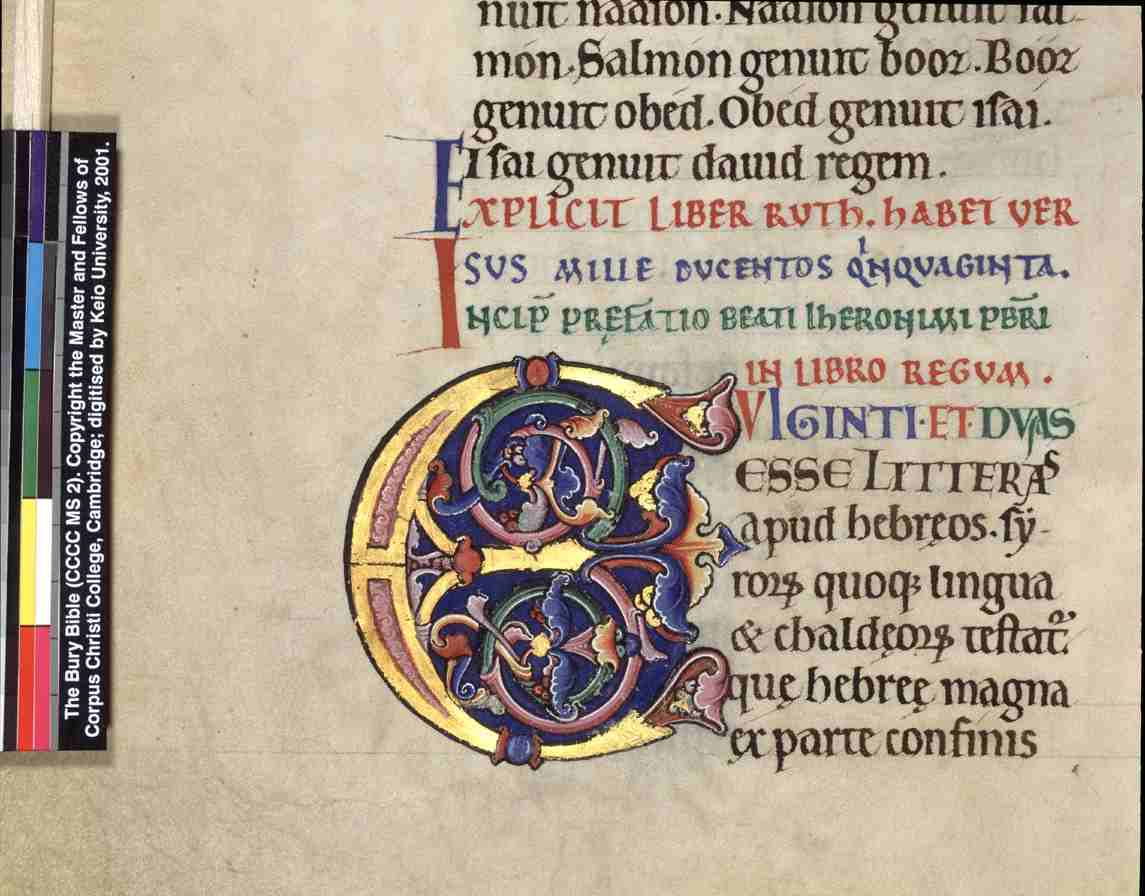 nuit naason. Naason genuit sal-
mon. Salmon genuit booz. Booz
genuit obed. Obed genuit isai.
Isai genuit dauid regem.
EXPLICIT LIBER RUTh. hABET VER
SUS MILLE DUCENTOS QͥNQVAGINTA.
INCIP̄ PREFATIO BEATI IhERONIMI PB̄RI
IN LIBRO REGUM.
VIGINTI·ET·DVAS
ESSE LITTERAS
apud hebręos. sy-
roꝝ quoqꝫ lingua
& chaldęoꝝ testat᷑.
quę hebreę magna
ex parte confinis
The Bury Bible (CCCC MS 2). Copyright the Master and Fellows of
Corpus Christi College, Cambridge; digitised by Keio University, 2001.